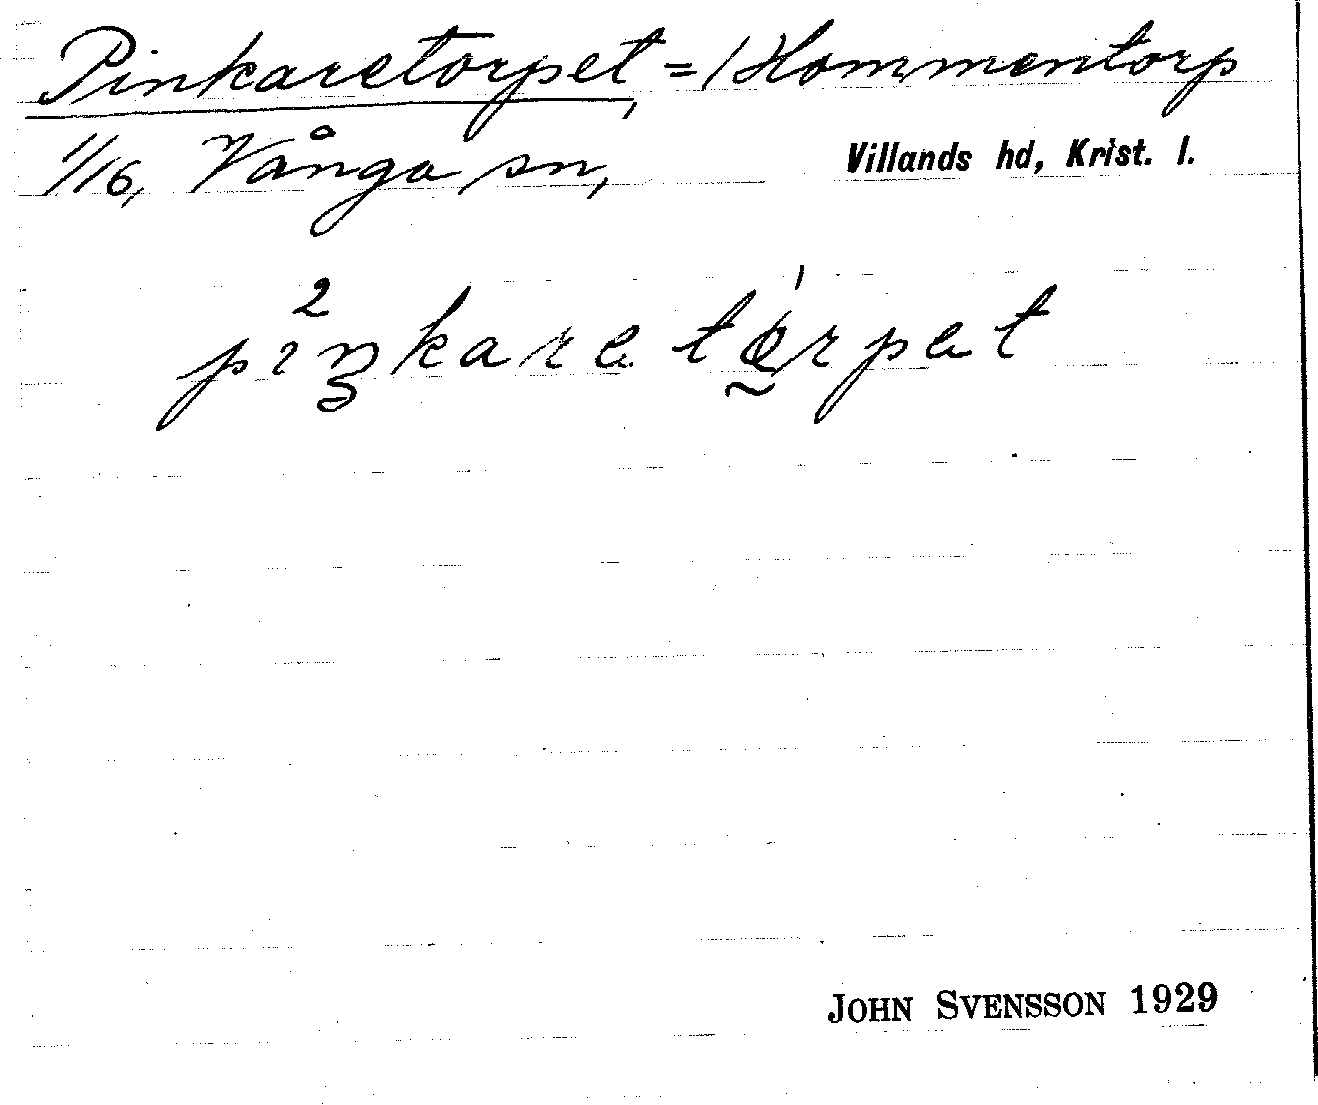 Pinkaretorpet, = / Hommentorp
1/16, Vånga sn, Villands hd, Krist. l.
2 1
pinkare torpet
JOHN SVENSSON 1929